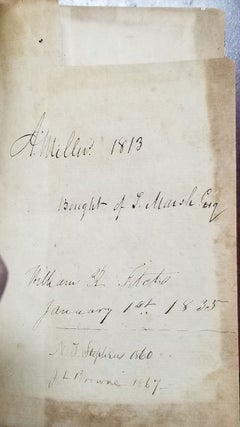 A. Miller. 1813
Bought of S. Marsh Esq
William H.
January 1st. 1835
N. T. Stephens 1860
J L Browne 1867